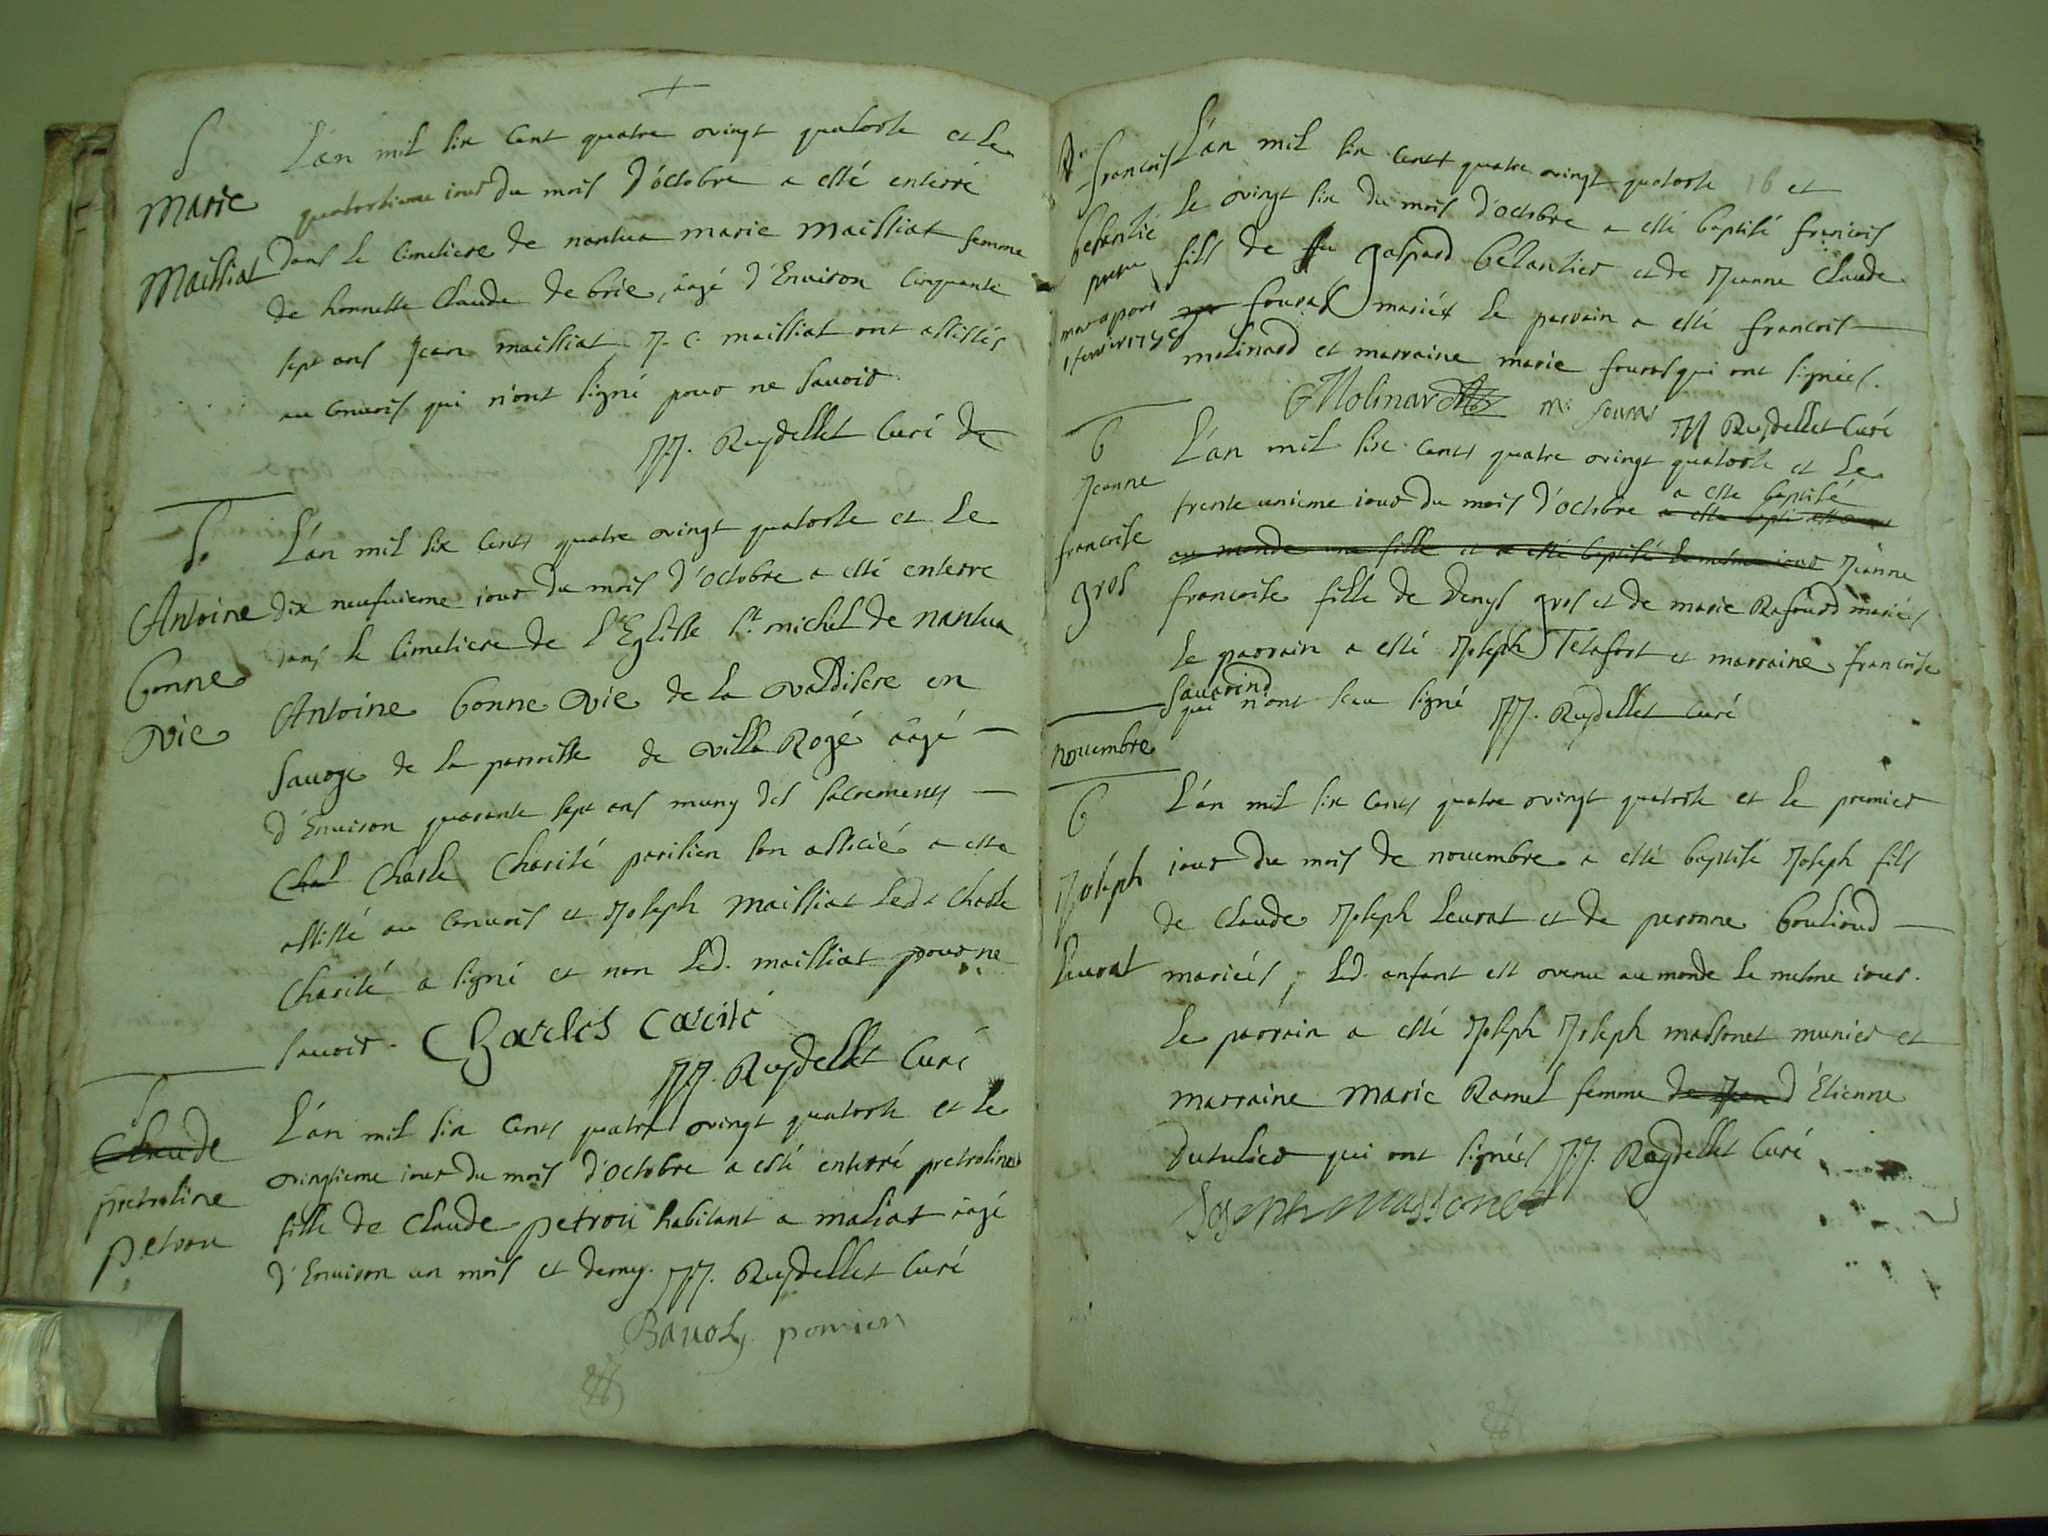 S
Marie
Maissiat
L'an mil six cent quatre vingt quatorse et le
quatorsieme iour du mois d'octobre a esté enterré
dans le cimetiere de nantua marie Maissiat femme
de honneste Claude de brie, âagé d'Environ Cinquante
sept ans Jean maissiat J. C. maissiat ont assistés
au convois qui n'ont signé pour ne savoir
JJ. Reydellet Curé de
S.
Antoine
bonne
vie
L'an mil six cents quatre vingt quatorse et le
dix neufuieme iour du mois d'octobre a esté enterre
dans le cimetiere de l'Eglisse st. michel de nantua
Antoine bonne vie de la valdisere en
Sauoge de la parroisse de villa Rogé âagé
d'Enuiron quarante sept ans muny des sacrements
Chal Charle Charité parisien son associé a este
assisté au conuois et Joseph Maissiat Led. Charle
Charité a signé et non Led. maissiat pour ne
sauoir. Charles Carité
JJ. Reydellet Curé
S
Claude
pretroline
petrou
L'an mil six Cents quatre vingt quatorse et le
vingtieme iour du mois d'octobre a esté enterré pretroline
fille de Claude petrou habitant a maliat âagé
d'Enuiron un mois et demy. JJ. Reydellet Curé
francois
belantié
1 feurier
L'an mil six cents quatre vingt quatorse 16 et
le vingt six du mois d'octobre a esté baptisé francois
fils de feu gaspard belantier et de Jeanne Claude
fouras mariés le parrain a esté francois
molinard et marraine marie fouras qui ont signées.
Molinard M. fouras JJ Reydellet Curé
b
Jeanne
francoise
gros
L'an mil six cents quatre vingt quatorse et le
trente unieme iour du mois d'octobre a este baptisé
au monde une fille et a esté baptisé le mesme iour Jeanne
francoise fille de denys gros et de marie Rafourd mariés
Le parrain a esté Joseph Telafort et marraine francoise
Sauarind
qui n'ont sceu signé JJ. Reydellet Curé
Nouembre
b
Joseph
Leurat
L'an mil six cents quatre vingt quatorse et le premier
iour du mois de nouembre a esté baptisé Joseph fils
de Claude Joseph Leurat et de peronne boulioud
mariés, Led. enfant est venu au monde le mesme iour.
Le parrain a esté Joseph Joseph massonet munier et
marraine Marie Ramel femme de Jean d'Etienne
Dutulier qui ont signés JJ. Reydellet Curé
Joseph massonet